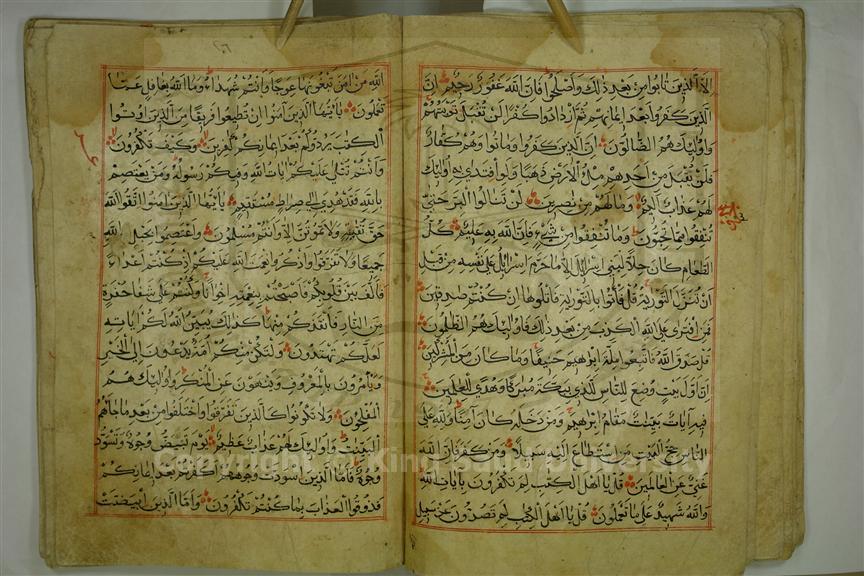 الا الذين تابوا من بعد ذلك واصلحوا فان الله غفور رحيم ان
الذين كفروا بعد ايمانهم ثم ازدادوا كفرا لن تقبل توبتهم
واولئك هم الضالون ان الذين كفروا وماتوا وهم كفار
فلن يقبل من احدهم ملء الارض ذهبا ولو افتدى به اولئك
لهم عذاب اليم وما لهم من نصرين لن تنالوا البر حتى
تنفقوا مما تحبون وما تنفقوا من شيء فان الله به عليم كل
الطعام كان حلا لبني اسرائيل الا ما حرم اسرائيل على نفسه من قبل
ان تنزل التورية قل فأتوا بالتورية فاتلوها ان كنتم صدقين
فمن افترى على الله الكذب من بعد ذلك فاولئك هم الظلمون
قل صدق الله فاتبعوا ملة ابرهيم حنيفا وما كان من المشركين
ان اول بيت وضع للناس للذي ببكة مبركا وهدى للعلمين
فيه آيات بينات مقام ابرهيم ومن دخله كان آمنا ولله على
الناس حج البيت من استطاع اليه سبيلا ومن كفر فان الله
غني عن العالمين قل يا اهل الكتب لم تكفرون بآيات الله
والله شهيد على ما تعملون قل يا اهل الكتب لم تصدون عن سبيل
الله من امن تبغونها عوجا وانتم شهداء وما الله بغافل عما
تعملون يايها الذين آمنوا ان تطيعوا فريقا من الذين اوتوا
الكتب يردوكم بعد ايمانكم كفرين وكيف تكفرون
وانتم تتلى عليكم ايات الله وفيكم رسوله ومن يعتصم
بالله فقد هدي الى صراط مستقيم يايها الذين امنوا اتقوا الله
حق تقته ولا تموتن الا وانتم مسلمون واعتصموا بحبل الله
جميعا ولا تفرقوا واذكروا نعمت الله عليكم اذ كنتم اعداء
فالف بين قلوبكم فاصبحتم بنعمته اخوانا وكنتم على شفا حفرة
من النار فانقذكم منها كذلك يبين الله لكم اياته
لعلكم تهتدون ولتكن منكم امة يدعون الى الخير
ويأمرون بالمعروف وينهون عن المنكر واولئك هم
المفلحون ولا تكونوا كالذين تفرقوا واختلفوا من بعد ما جاءهم
البينت واولئك لهم عذاب عظيم يوم تبيض وجوه وتسود
وجوه فاما الذين اسودت وجوههم اكفرتم بعد ايمانكم
فذوقوا العذاب بما كنتم تكفرون واما الذين ابيضت
Copyright © King Saud University